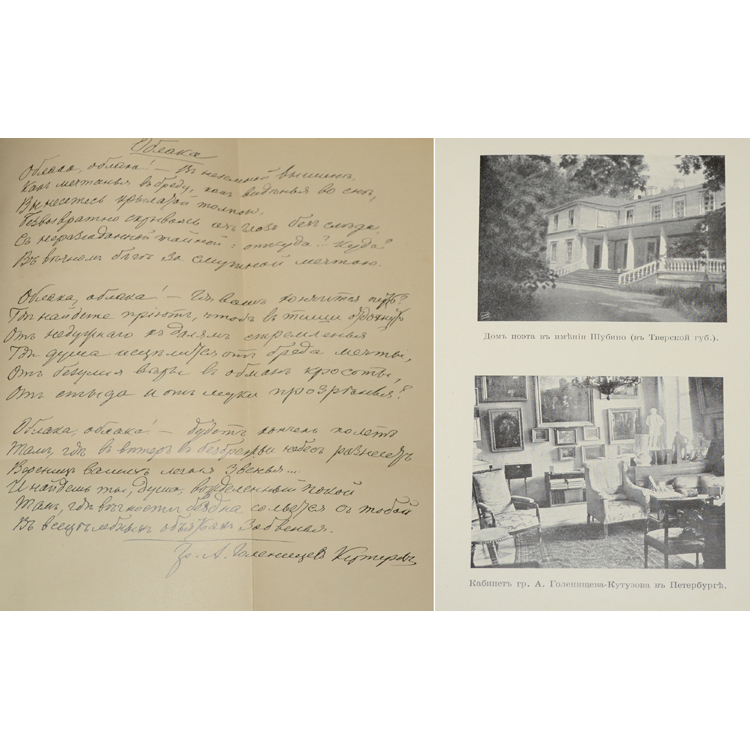 Облака
Облака, облака! — Въ неземной вышинѣ,
Какъ мечтанья въ бреду, какъ видѣнья во снѣ,
Вы несетесь крылатой толпою.
Безвозвратно скрываясь изъ глазъ безъ слѣда,
Съ неразгаданной тайной: откуда? куда?
Въ вѣчномъ бѣгѣ за смутной мечтою.
Облака, облака! — Гдѣ вамъ кончится путь?
Гдѣ найдете пріютъ, чтобъ въ тиши отдохнуть
Отъ недужнаго къ далямъ стремленья
Гдѣ душа исцѣлится отъ бреда мечты,
Отъ безумія вѣры въ обманъ красоты,
Отъ стыда и отъ муки прозрѣнья?
Облака, облака! — будетъ конченъ полетъ
Тамъ, гдѣ вѣтеръ въ безбрежьи небесъ разнесетъ
Вереницъ вашихъ легкія звенья...
И найдешь ты, душа, вожделенный покой
Тамъ, гдѣ вѣчности бездна сольется съ тобой
Въ всецѣлебныхъ объятьяхъ Забвенья.
Гр. А. Голенищев Кутузов
Домъ поэта въ имѣніи Шубино (въ Тверской губ.).
Кабинетъ гр. А. Голенищева-Кутузова въ Петербургѣ.